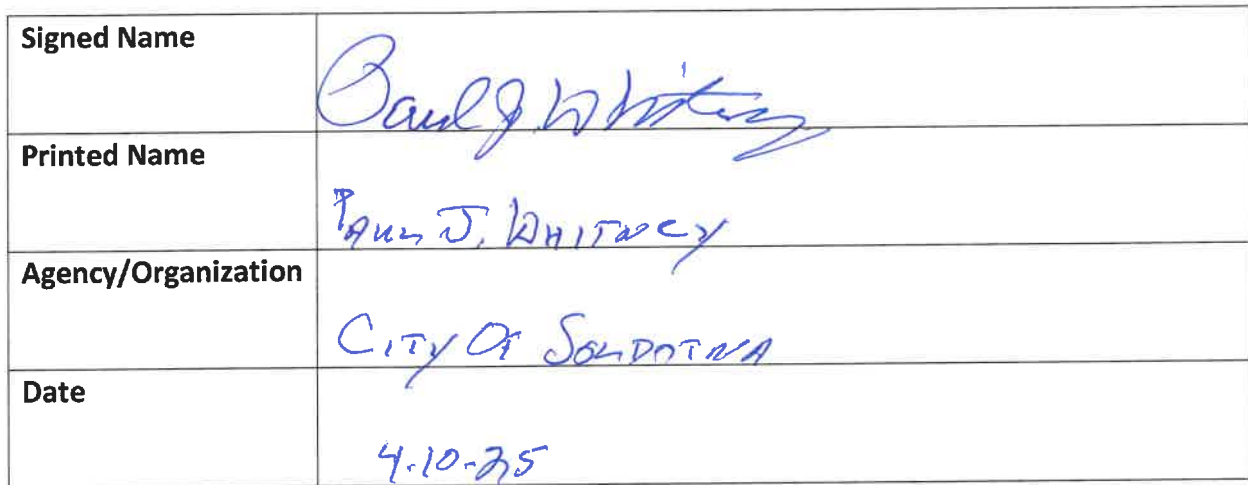 Signed Name
Paul J. Whitney
Printed Name
PAUL J. WHITNEY
Agency/Organization
CITY OF SOLDOTNA
Date
4-10-25